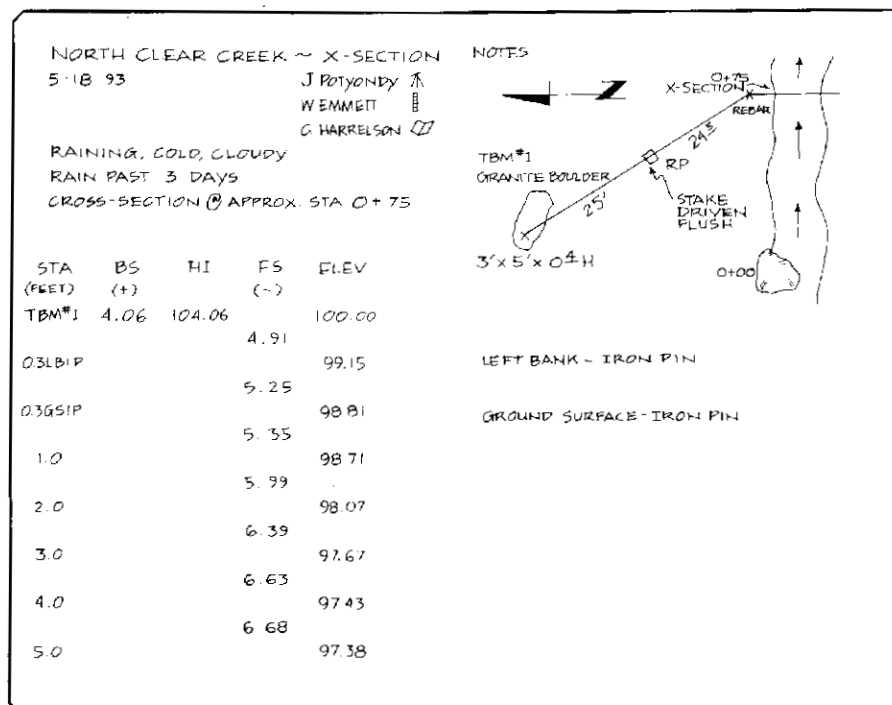 NORTH CLEAR CREEK ~ X-SECTION
5-18 93
J POTYONDY
W EMMETT
C HARRELSON
RAINING, COLD, CLOUDY
RAIN PAST 3 DAYS
CROSS-SECTION @ APPROX. STA 0+75
STA BS HI FS ELEV
(FEET) (+) (-)
TBM#1 4.06 104.06 100.00
4.91
0.3LBIP 99.15
5.25
0.3GSIP 98 81
5.35
1.0 98 71
5.99
2.0 98.07
6.39
3.0 97.67
6.63
4.0 97 43
6 68
5.0 97.38
NOTES
0+75
X-SECTION
REBAR
Z
24.5
TBM#1
GRANITE BOULDER
RP
STAKE
DRIVEN
FLUSH
25'
3'x 5'x 0.4 H
0+00
LEFT BANK - IRON PIN
GROUND SURFACE-IRON PIN